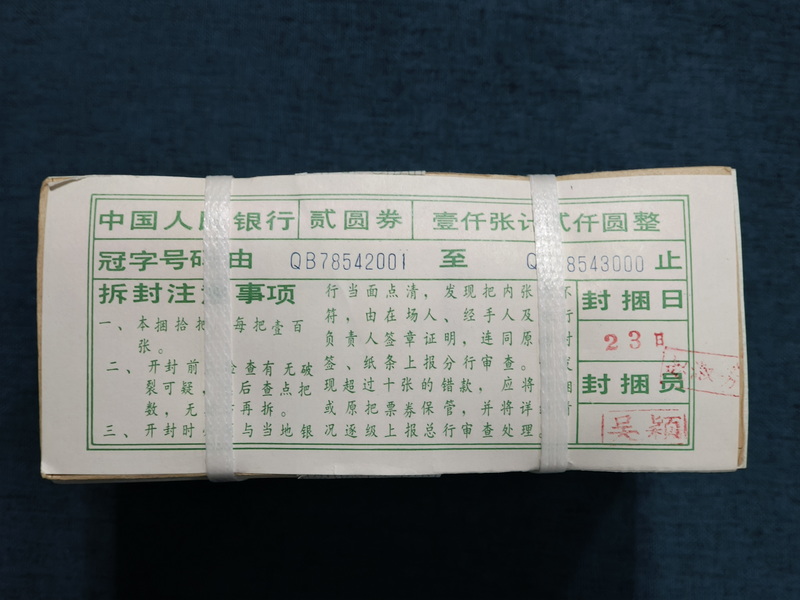 中国人民银行 贰圆券 壹仟张计贰仟圆整
冠字号码由 QB78542001 至 Q 8543000 止
拆封注 事项
一、本捆拾把 每把壹百
张。
二、开封前 检查有无破
裂可疑, 后查点把
数,无 再拆。
三、开封时 与当地银
行当面点清,发现把内张 不
符,由在场人、经手人及 行
负责人签章证明,连同原 封
签、纸条上报分行审查。
现超过十张的错款,应将 相
或原把票券保管,并将详
况逐级上报总行审查处理。
封捆日
23日
封捆员
吴颖